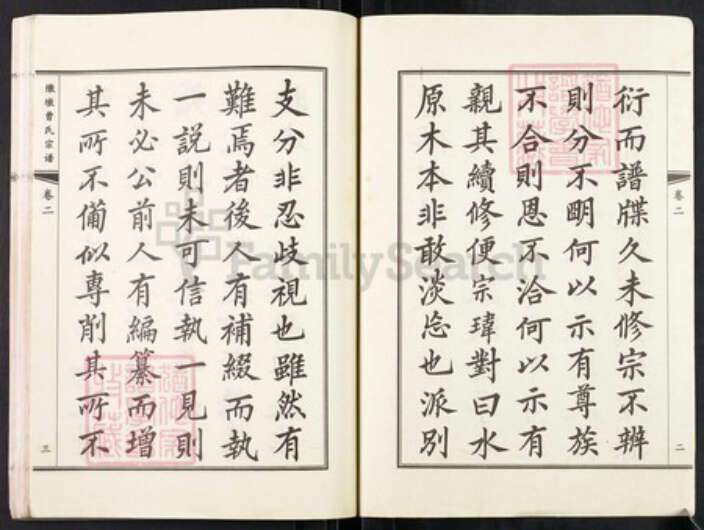 卷二
二
衍而譜牒久未修宗不辨
則分不明何以示有尊族
不合則恩不洽何以示有
親其續修便宗瑋對曰水
原木本非敢淡忘也派別
支分非忍歧視也雖然有
難焉者後人有補綴而執
一說則未可信執一見則
未必公前人有編纂而增
其所不備似專削其所不
曹氏宗譜
卷二
三
FamilySearch